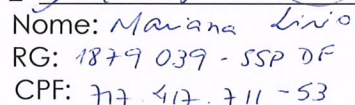 Nome: Mariana Lirio
RG: 1879 039 - SSP DF
CPF: 717.417.711-53